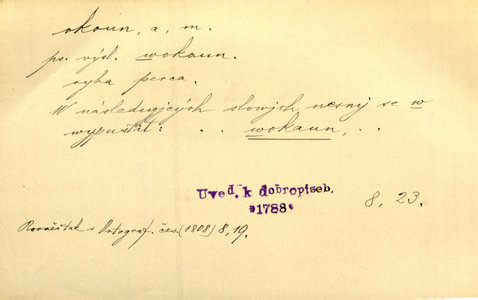 okoun, a, m.
ps. výsl. wokaun.
ryba perca.
W následugjcých slowjch nesmj se w
wypustit: . . wokaun, . .
Uved. k dobropiseb.
*1788*
8, 23.
v Ortograf. čes. (1808) 8, 19.